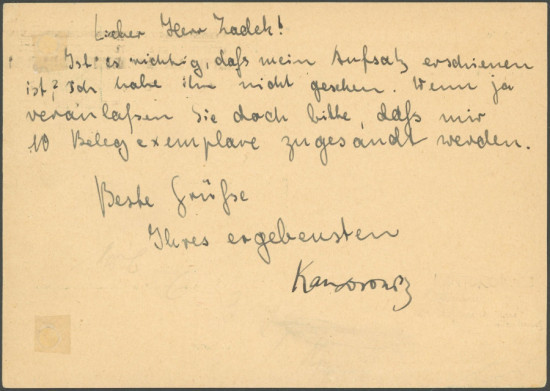 Lieber Herr Zadek!
Ist es richtig, dafs mein Aufsatz erschienen
ist? Ich habe ihn nicht gesehen. Wenn ja
veranlafsen Sie doch bitte, dafs mir
10 Belegexemplare zugesandt werden.
Beste Grüfse
Ihres ergebensten